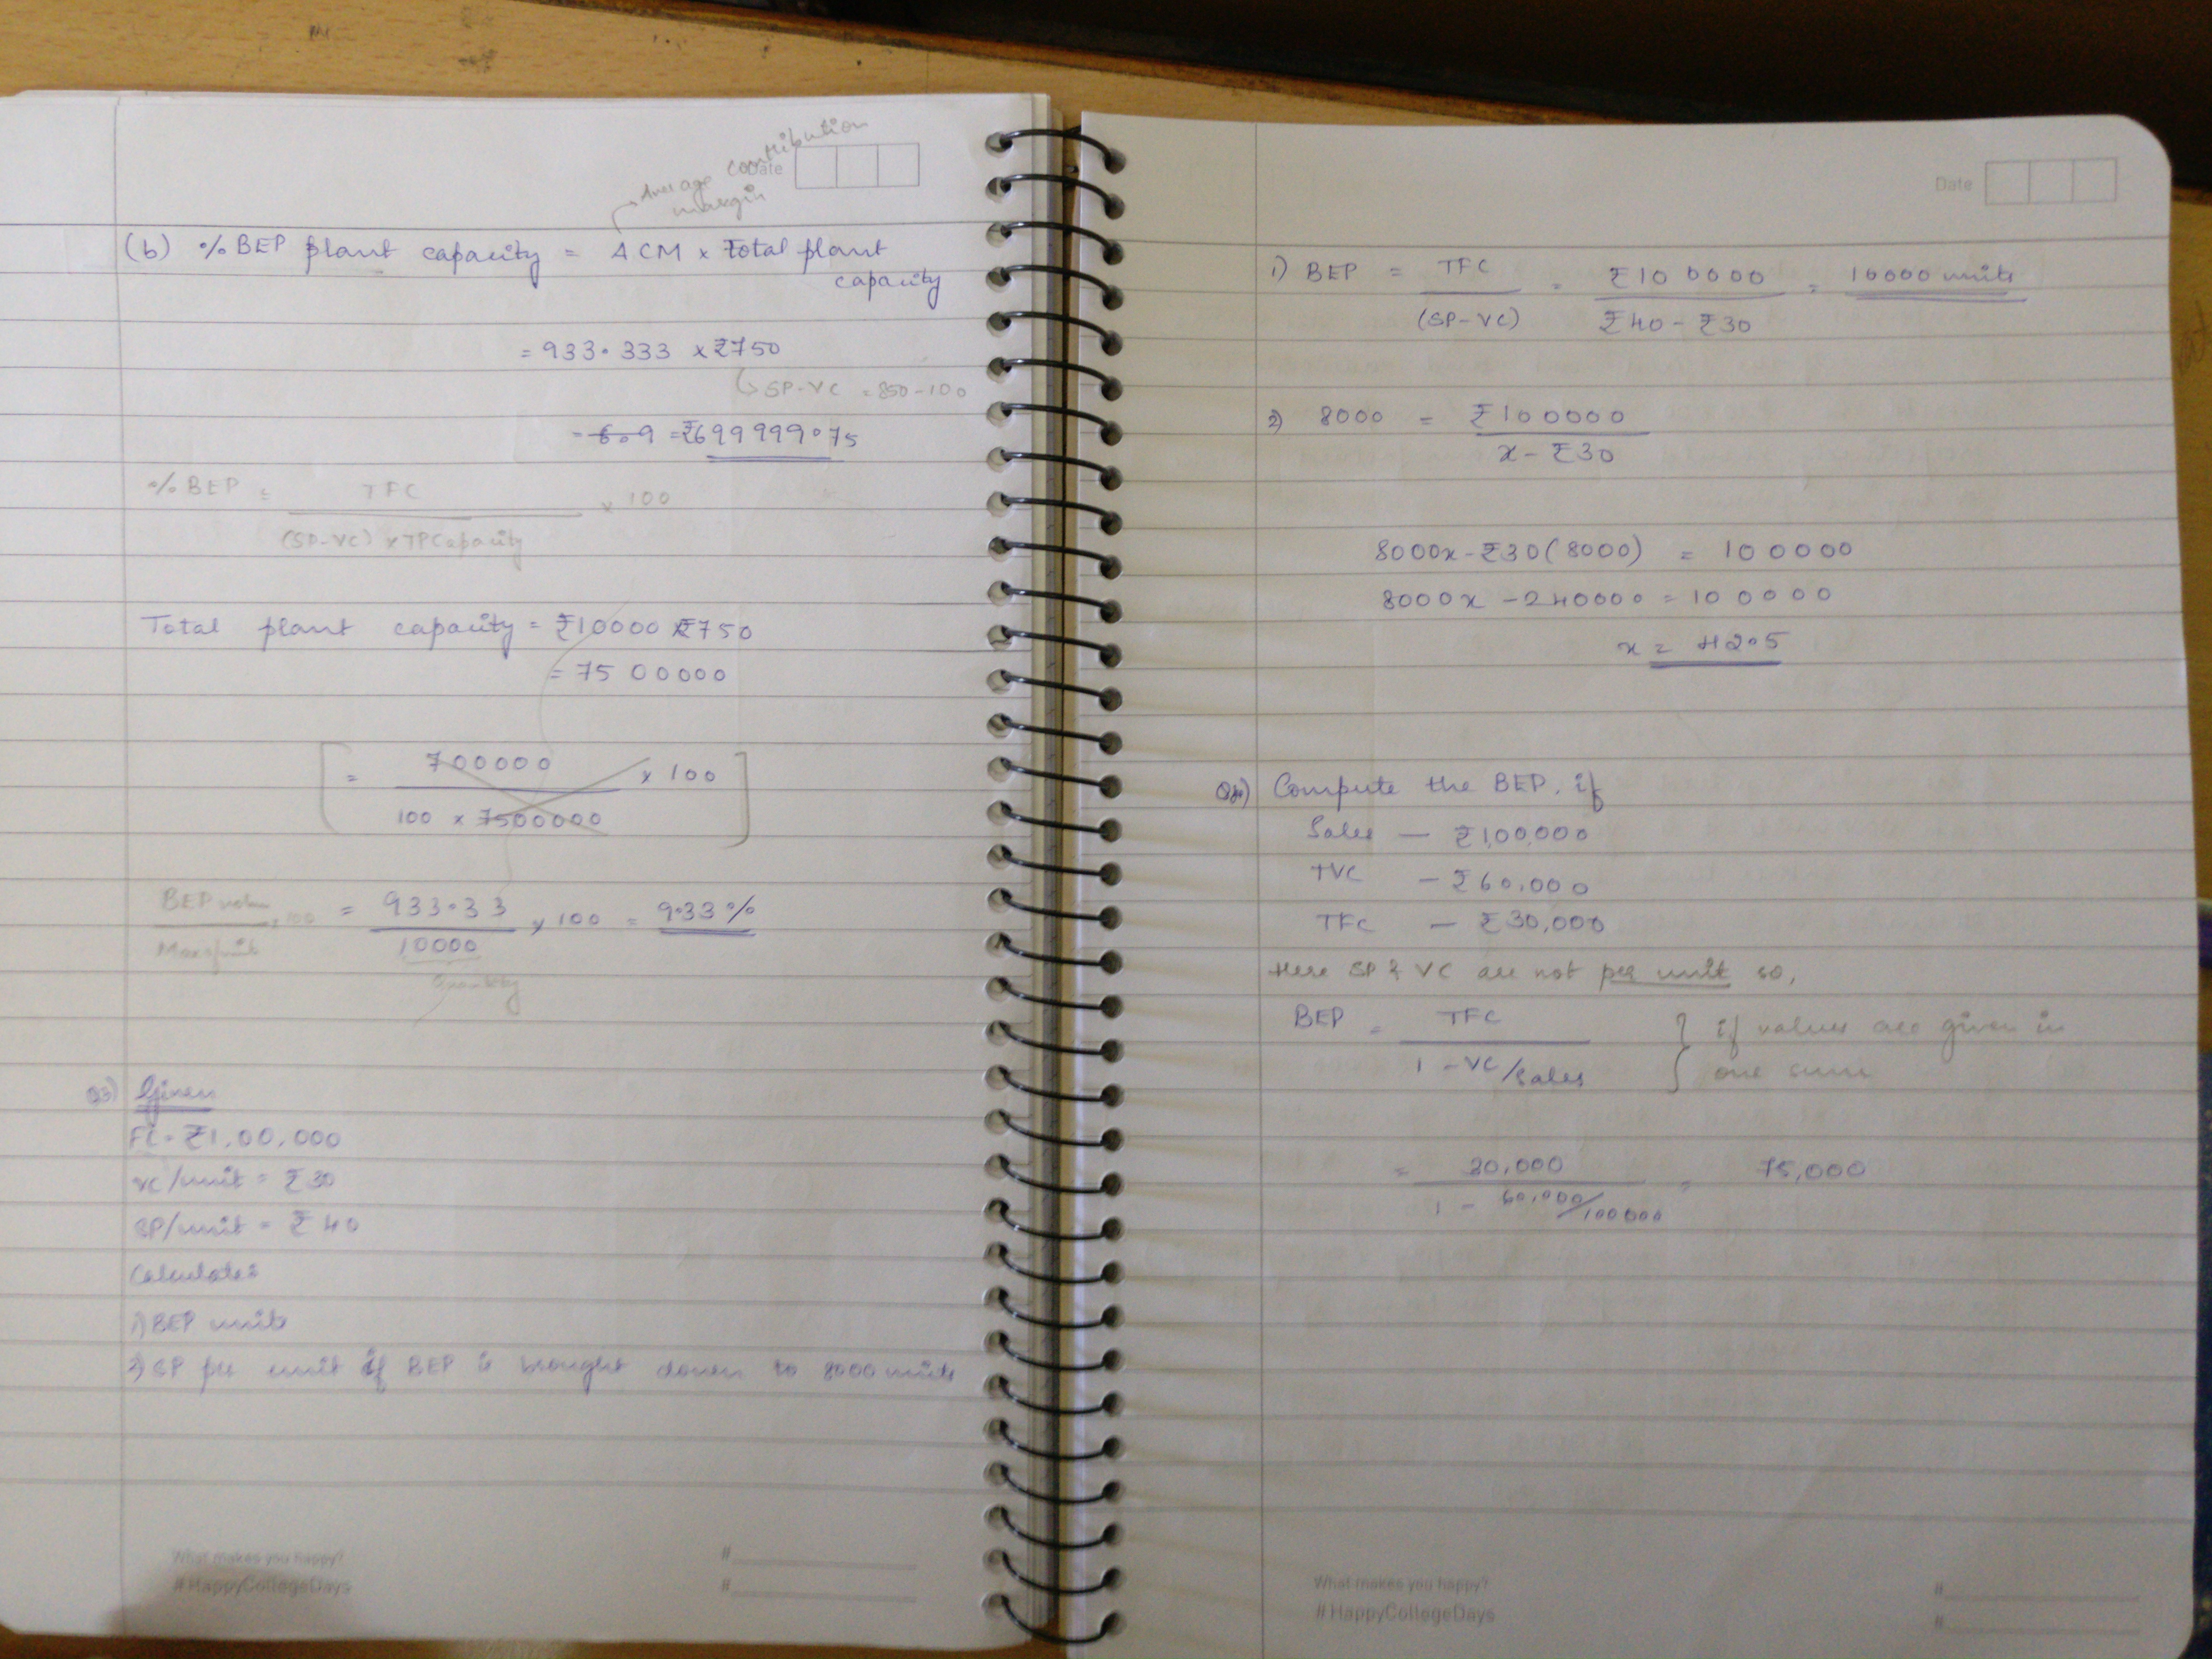 Average Contribution
margin
Date
(b) % BEP plant capacity = ACM x Total plant
capacity
= 933.333 x ₹750
↳ SP-VC = 850-100
= 6.9 = ₹699999.75
% BEP = TFC x 100
(SP-VC) x TP Capacity
Total plant capacity = ₹10000 x ₹750
= 7500000
[ = 700000 x 100 ]
100 x 7500000
BEP x 100 = 933.33 x 100 = 9.33%
10000
Quantity
Q3) Given
FC = ₹1,00,000
VC/unit = ₹30
SP/unit = ₹40
Calculate:
1) BEP units
2) SP per unit if BEP is brought down to 8000 units
What makes you happy?
#HappyCollegeDays
#
#
Date
1) BEP = TFC = ₹100000 = 10000 units
(SP-VC) ₹40 - ₹30
2) 8000 = ₹100000
x - ₹30
8000x - ₹30(8000) = 100000
8000x - 240000 = 100000
x = 42.5
Compute the BEP. if
Sales — ₹1,00,000
TVC — ₹60,000
TFC — ₹30,000
Here SP & VC are not per unit so,
BEP = TFC } if values are given in
1 - VC/Sales one sum
= 30,000 = 75,000
1 - 60,000/100000
What makes you happy?
#HappyCollegeDays
#
#